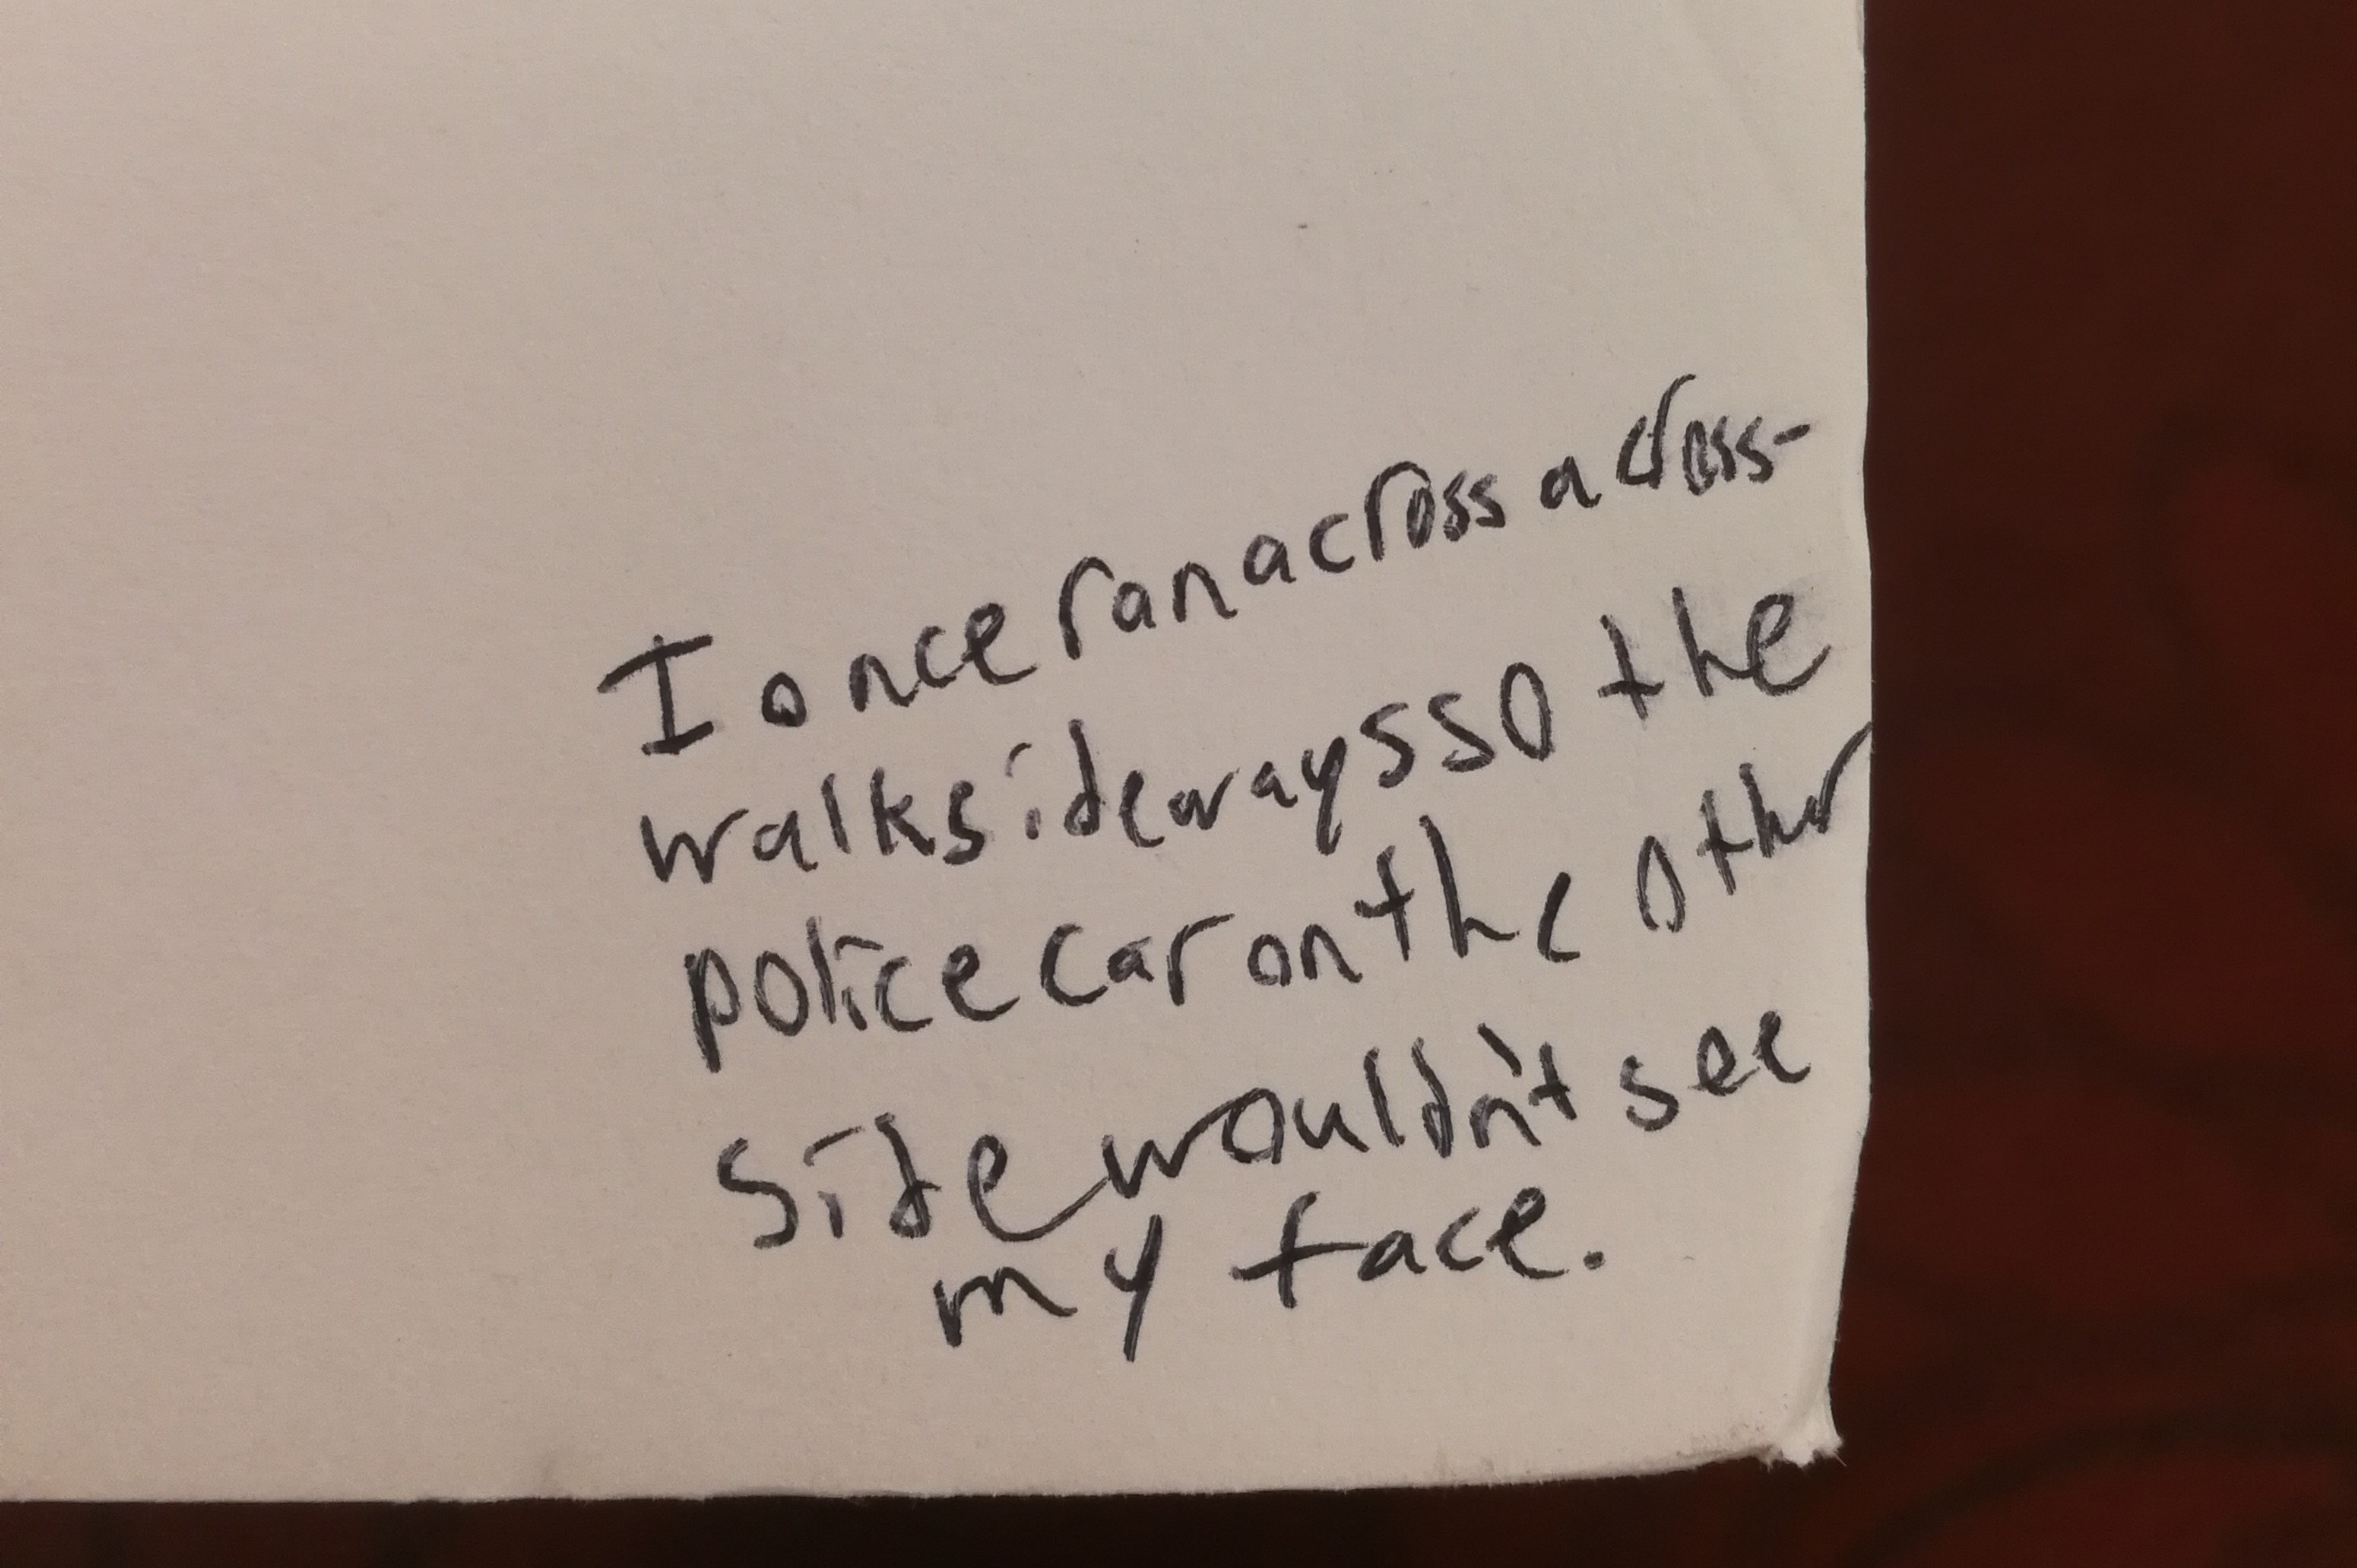 I once ran across a cross-
walk sideways so the
police car on the other
side wouldn't see
my face.